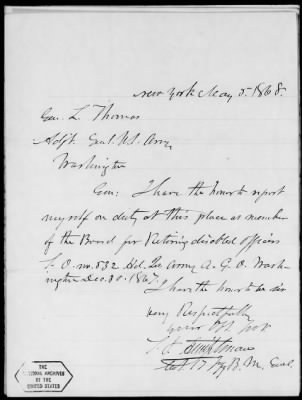 New York May 5. 1868.
Gen. L. Thomas
Adjt. Genl. U.S. Army
Washington
Gen: I have the honor to report
myself on duty at this place as member
of the Board for Retiring disabled officers
S. O. no. 532 Hd. Qrs Army A. G. O. Wash-
ington Dec. 30. 1867.
I have the honor to be sir
very Respectfully
your Obt Svt
Col 17 Inf B. M. Genl.
THE
NATIONAL ARCHIVES
OF THE
UNITED STATES